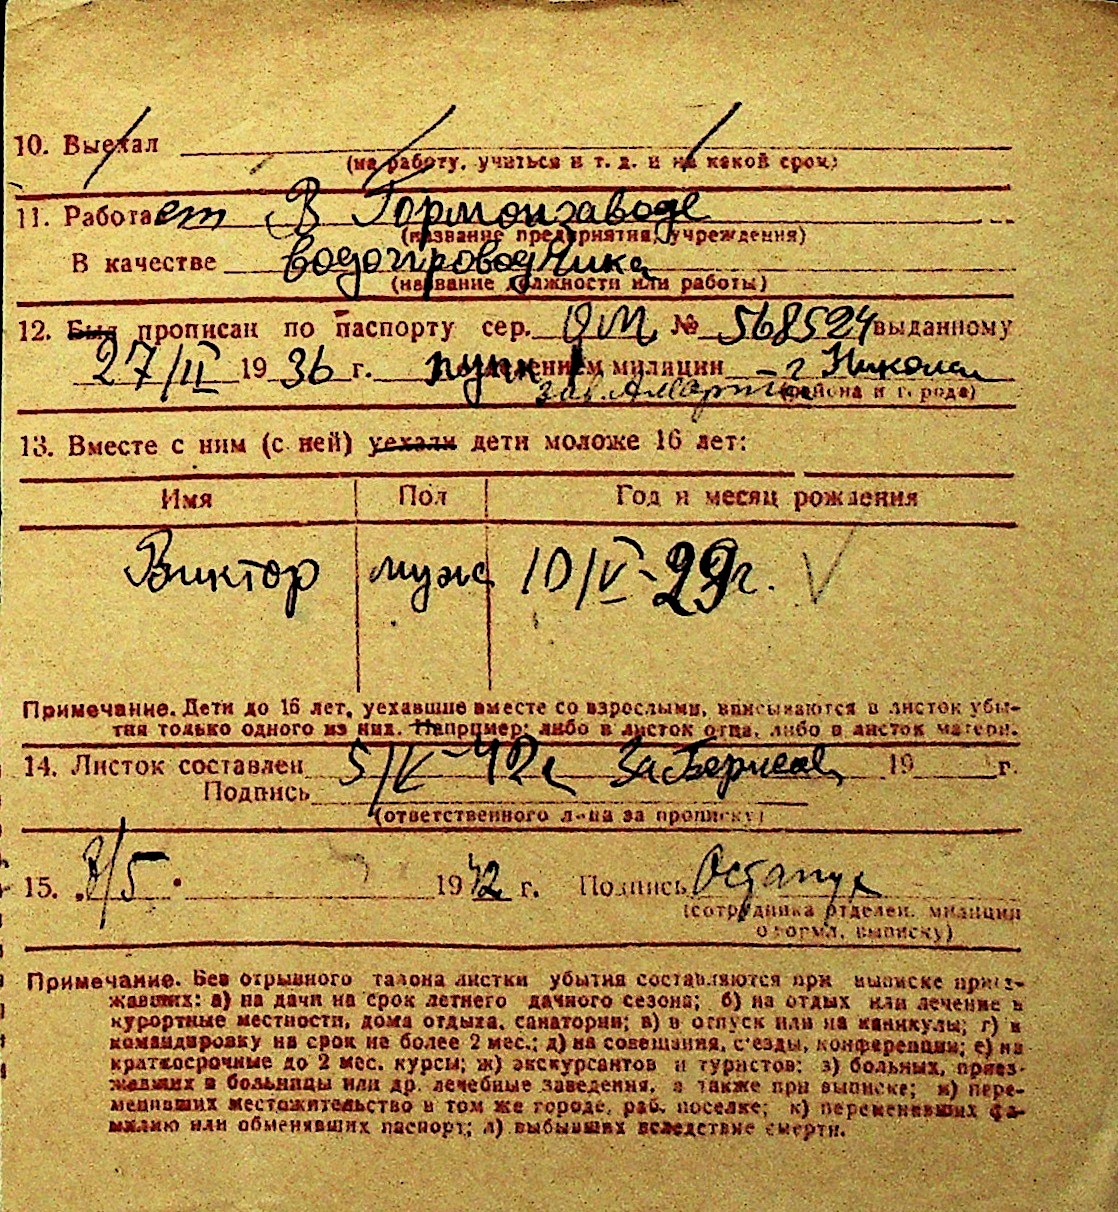 10. Выехал
(на работу, учиться и т. д. и на какой срок)
11. Работает в Гормонзаводе
(название предприятия, учреждения)
В качестве водопроводчика
(название должности или работы)
12. Был прописан по паспорту сер. № 568524 выданному
27/II 1936 г. пунк отделением милиции – г Никола
зав. А.Марти (района и города)
13. Вместе с ним (с ней) уехали дети моложе 16 лет:
Имя Пол Год и месяц рождения
Виктор муж 10/IV-29г.
Примечание. Дети до 16 лет, уехавшие вместе со взрослыми, вписываются в листок убы-
тия только одного из них. Например: либо в листок отца, либо в листок матери.
14. Листок составлен 5/V-42г 19 г.
Подпись
(ответственного лица за прописку)
15. „8/5" 1942 г. Подпись Остапук
(сотрудника отделен. милиции
оформл. выписку)
Примечание. Без отрывного талона листки убытия составляются при выписке приез-
жавших: а) на дачи на срок летнего дачного сезона; б) на отдых или лечение в
курортные местности, дома отдыха, санатории; в) в отпуск или на каникулы; г) в
командировку на срок не более 2 мес.; д) на совещания, с'езды, конференции; е) на
краткосрочные до 2 мес. курсы; ж) экскурсантов и туристов; з) больных, приез-
жавших в больницы или др. лечебные заведения, а также при выписке; и) пере-
менивших местожительство в том же городе, раб. поселке; к) переменивших фа-
милию или обменявших паспорт; л) выбывших вследствие смерти.